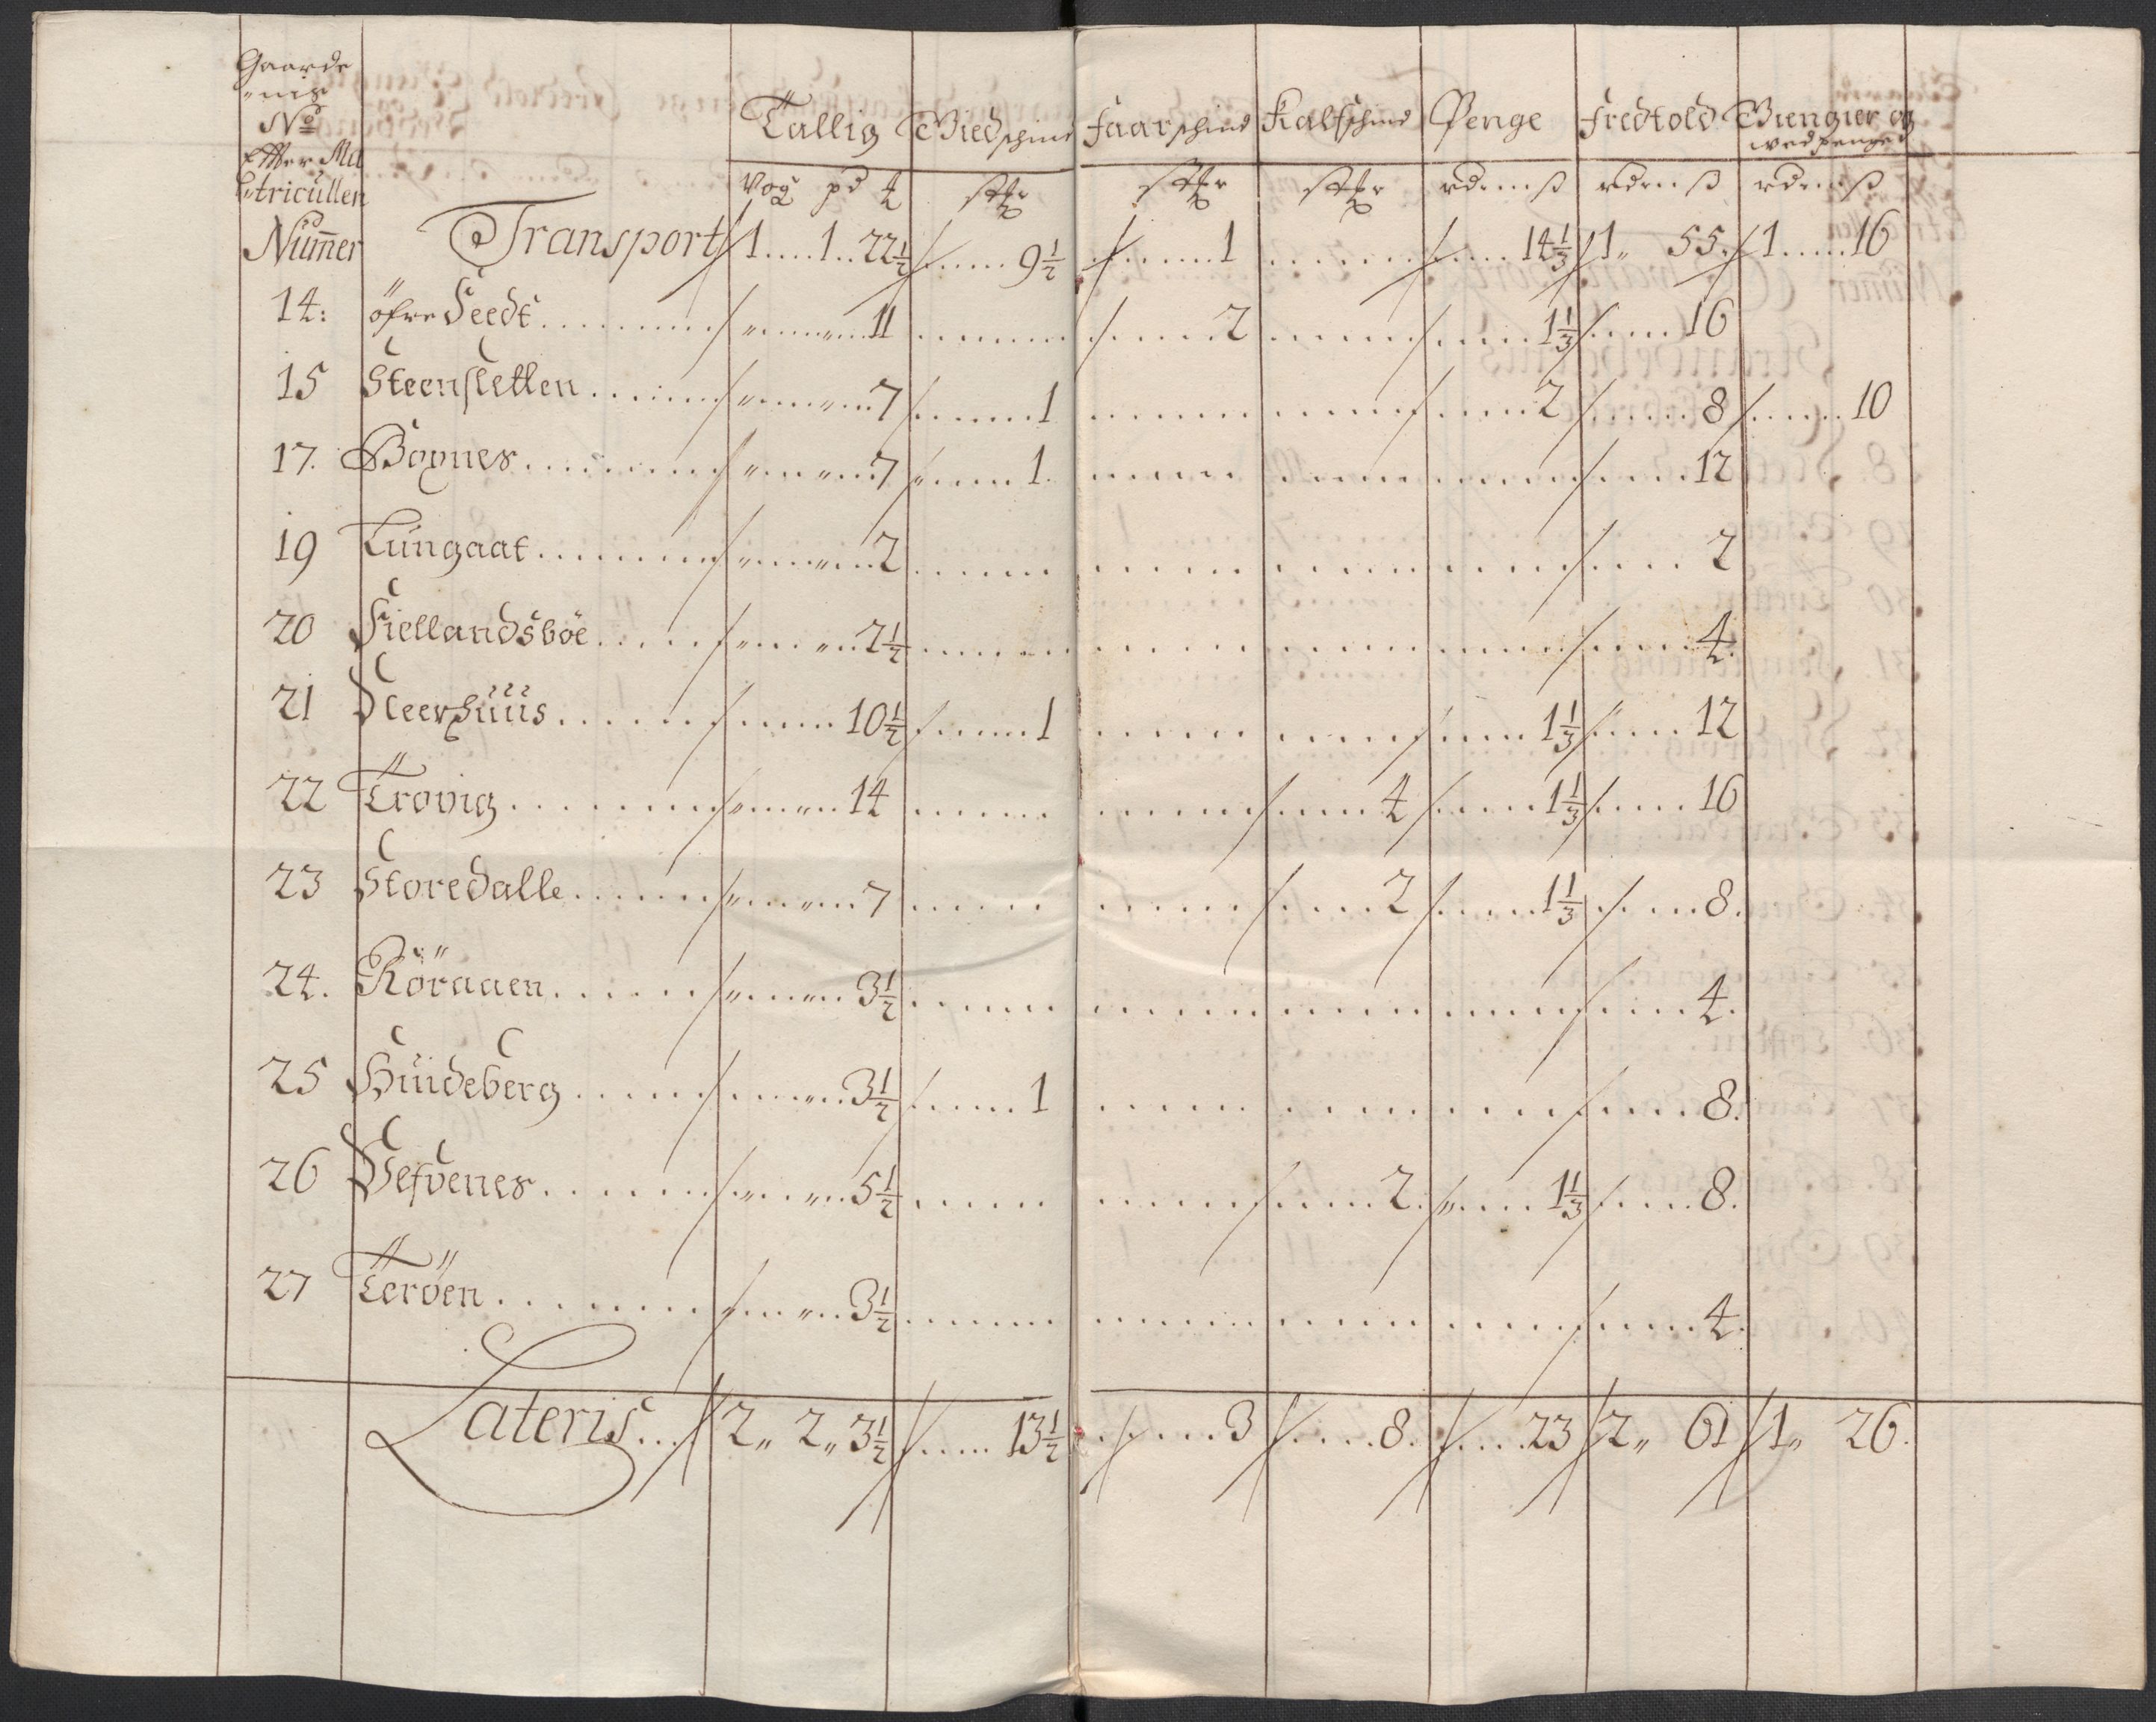 Gaarde
nis
No
Effter Ma
tricullen
Num̄er
Tallig Gied schind Faar schind Kalfschind Penge Fredtold Giengier og
wed penge
Vog pd ℔ stkr stkr stkr rdr ß rdr ß rdr ß
Transport 1 1 22½ 9½ 1 14⅓ 1 55 1 16
14: öfre Seedt 11 2 1⅓ 16
15 Steensletten 7 1 2 8 10
17. Boynes 7 1 12
19 Lungaat 2 2
20 Fiellandsböe 2½ 4.
21 Sleerhuus 10½ 1 1⅓ 12
22 Trovig 14 4 1⅓ 16
23 Storedalle 7 2 1⅓ 8.
24. Röraaen 3½ 4.
25 Hundeberg 3½ 1 8.
26 Sefvenes 5½ 2. 1⅓ 8.
27 Teröen 3½ 4.
Lateris 2 2 3½ 13½ 3 8. 23 2 61 1 26.